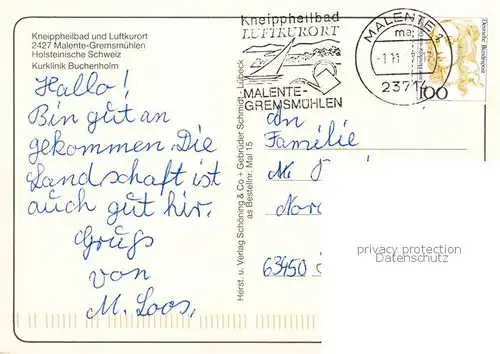 Kneippheilbad und Luftkurort
2427 Malente-Gremsmühlen
Holsteinische Schweiz
Kurklinik Buchenholm
Hallo!
Bin gut an
gekommen. Die
Landschaft ist
auch gut hir.
Grugs
von
M. Loos,
Herst. u. Verlag Schöning & Co + Gebrüder Schmidt - Lübeck
as Bestellnr. Mal 15
Kneippheilbad
LUFTKURORT
MALENTE-
GREMSMÜHLEN
MALENTE 1
ma
23714
Deutsche Bundespost
100
An
Familie
M.
Nor
63450
privacy protection
Datenschutz